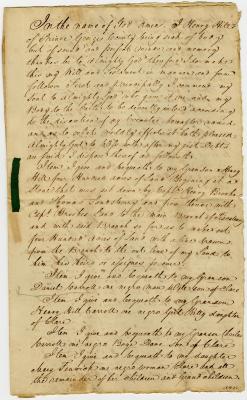 In the name of God Amen. I Henry Hill
of Prince Georges County being sick of body
but of sound and perfect mind and memory
thanks be to Almighty God therefore do make
this my Will and Testament in manner and form
followen First and principally I commend my
Soul to Almighty God who gave it me and my
Body to the Earth to be decently interd according to
the discretion of my Executor hereafter named
and as to such worldly Effects as it hath pleased
Almighty God to bless with after my just Debts
are paid I dispose thereof as followeth
Item I give and bequeath to my Grandson Henry
Hill four Hundred acres of Land Beginning at a
Stone that was set down by Capt. Henry Brooke
and Thomas and from thence with
Capt. Line to the main Branch of
and with said Branch so far as to make out
four Hundred acres of Land with a line drawn
from the Branch to the out line of my Land to
him his Heirs or assignes forever
Item I give and bequeath to my Grandson
Daniel Carroll one negro man son of Clare
Item I give and bequeath to my Grandson
Henry Hill Carroll one negro Girl Milly daughter
of Clare
Item I give and bequeath to my Grandson Charles
Carroll one negro Boy Dave Son of Clare
Item I give and bequeath to my daughter
Mary Fenwick one negro woman Clare and all
the remainder of her Children and Grand children